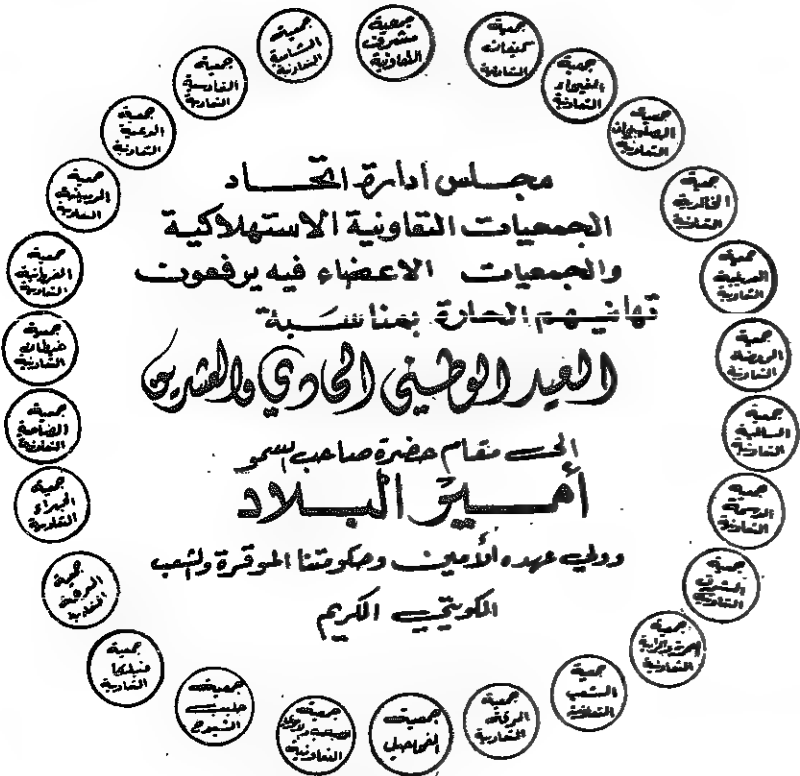 مجلس ادارة اتحاد
الجمعيات التعاونية الاستهلاكية
والجمعيات الاعضاء فيه يرفعون
تهانيهم الحارة بمناسبة
العيد الوطني الحادي والعشرين
الى مقام حضرة صاحب السمو
أمير البلاد
وولي عهده الأمين وحكومتنا الموقرة والشعب
الكويتي الكريم
جمعية
مشرف
التعاونية
جمعية
كيفان
التعاونية
جمعية
الفيحاء
التعاونية
جمعية
الصليبخات
التعاونية
جمعية
الخالدية
التعاونية
جمعية
الصليبية
التعاونية
جمعية
الروضة
التعاونية
جمعية
السالمية
التعاونية
جمعية
الدسمة
التعاونية
جمعية
الشرق
التعاونية
جمعية
التعاونية
جمعية
الشعب
التعاونية
جمعية
التعاونية
جمعية
الفحاحيل
جمعية
التعاونية
جمعية
جليب
الشيوخ
جمعية
فيلكا
التعاونية
جمعية
التعاونية
جمعية
الجهراء
التعاونية
جمعية
الضاحية
التعاونية
جمعية
غرناطة
التعاونية
جمعية
الفروانية
التعاونية
جمعية
التعاونية
جمعية
الدعية
التعاونية
جمعية
القادسية
التعاونية
جمعية
الشامية
التعاونية